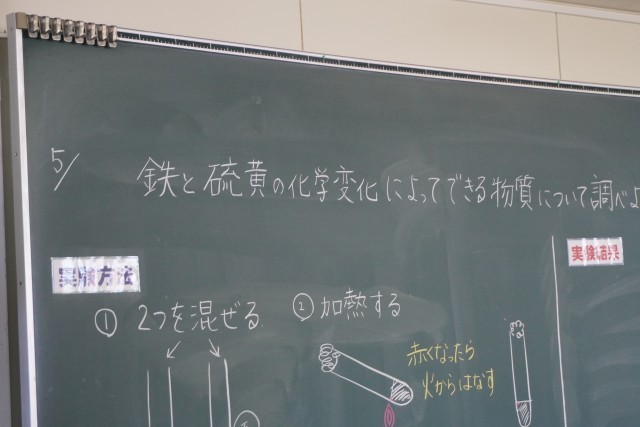 5/
鉄と硫黄の化学変化によってできる物質について調べよ
実験方法
実験結果
① 2つを混ぜる
② 加熱する
赤くなったら
火からはなす